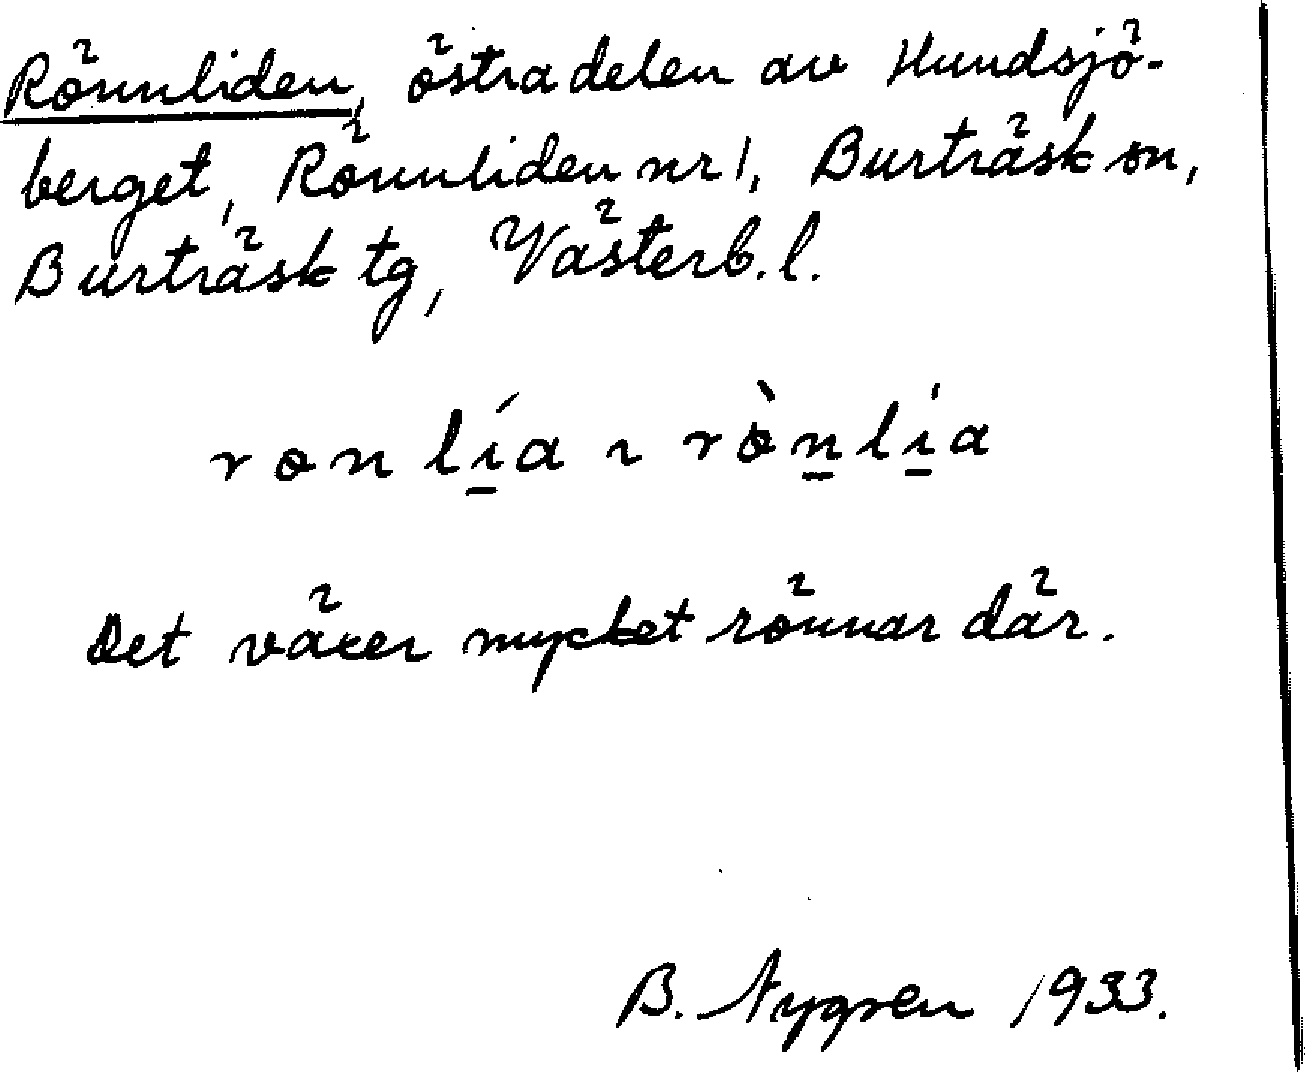 Rönnliden, östra delen av Hundsjö-
berget, Rönnliden nr 1, Burträsk sn,
Burträsk tg, Västerb. l.
ronlí̱a ~ ròṉlí̱a
Det växer mycket rönnar där.
B. Nygren 1933.